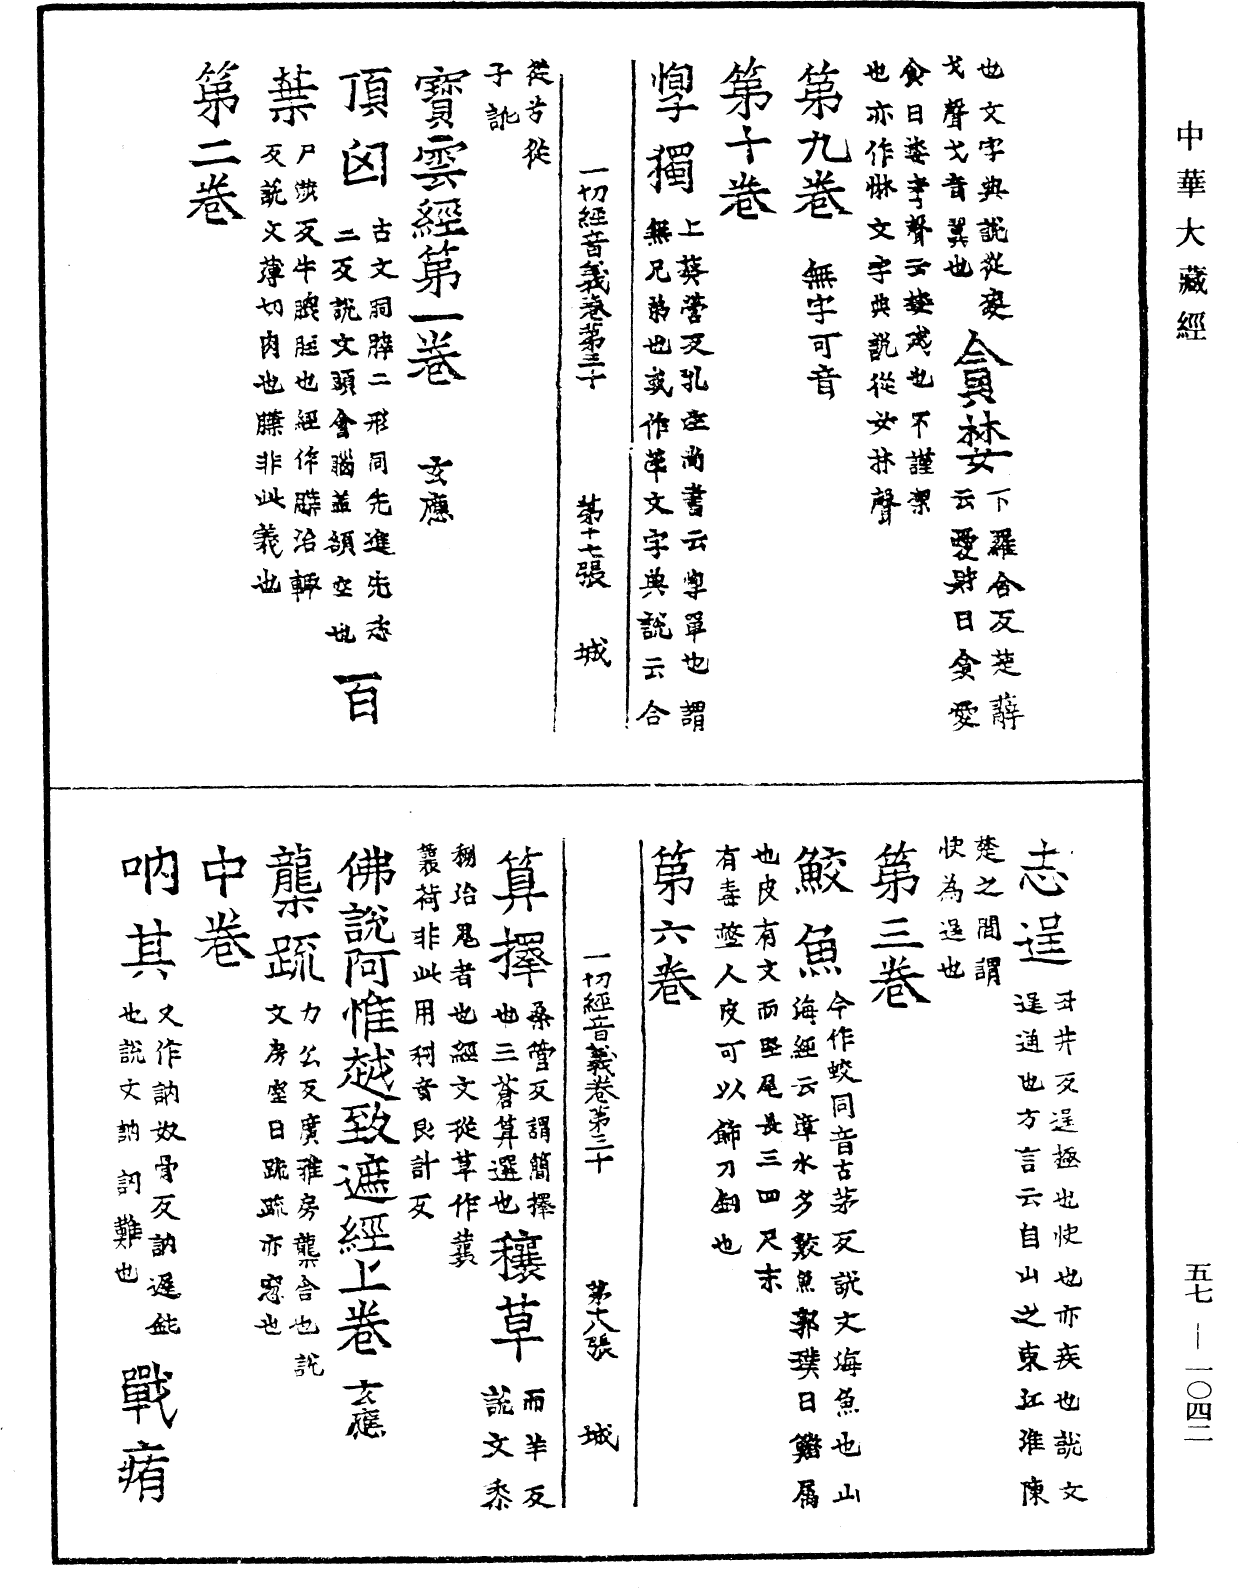 中華大藏經
也文字典說從妾
弋聲弋音翼也
貪婪
下羅含反楚辭
云愛財曰貪愛
食曰婪字聲云婪殘也不謹潔
也亦作惏文字典說從女林聲
第九卷
無字可音
第十卷
惸獨
上葵營反孔注尚書云惸單也謂
無兄弟也或作煢文字典說云合
一切經音義卷第三十
第十七張
城
從古從
子訛
寶雲經第一卷
玄應
頂囟
古文𦞤脺二形同先進先恣
二反說文頭會腦蓋頟空也
百
葉
尸涉反牛䐑胵也經作䐑治輒
反說文薄切肉也䐑非此義也
第二卷
志逞
丑井反逞極也快也亦疾也說文
逞通也方言云自山之東江淮陳
楚之間謂
快為逞也
第三卷
鮫魚
今作蛟同音古茅反說文海魚也山
海經云漳水多鮫魚郭璞曰䱜屬
也皮有文而堅尾長三四尺末
有毒螫人皮可以飾刀劍也
第六卷
一切經音義卷第三十
第十八張
城
算擇
桑管反謂簡擇
也三蒼算選也
穰草
而羊反
說文黍
𥠖治𥠖者也經文從草作蘘
蘘荷非此用𥠖音良計反
佛說阿惟越致遮經上卷
玄應
龍疏
力公反廣雅房櫳舍也說
文房室曰疏疏亦窓也
中卷
吶其
又作訥奴骨反訥遲鈍
也說文訥訶難也
戰痏
五七 — 一〇四二